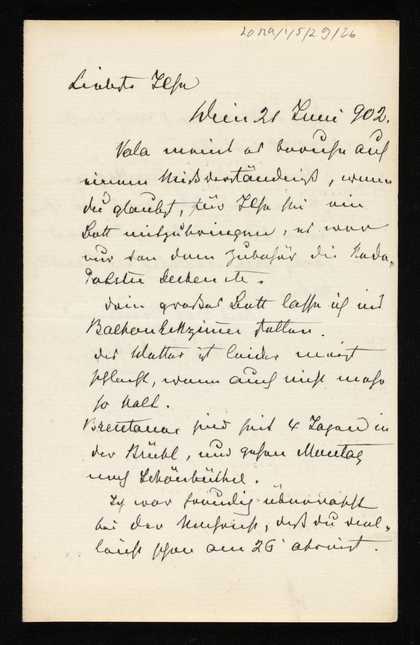 Liebste Ilse
Wien 21 Juni 902.
Vala meint es beruhe auf
einem Mißverständniß, wenn
du glaubst, für Ilse sei ein
Bett mitzubringen, es war
nur von dem Zubehör die Rede,
Polster Decken etc.
dein großes Bett lasse ich ins
Balkoneckzimmer stellen.
das Wetter ist leider meist
schlecht, wenn auch nicht mehr
so kalt.
Brentanos sind seit 4 Tagen in
der Brühl, und gehen Montag
nach Schönbühel.
Ich war freudig überrascht
bei der Nachricht, daß du viel-
leicht schon am 26 abreist.